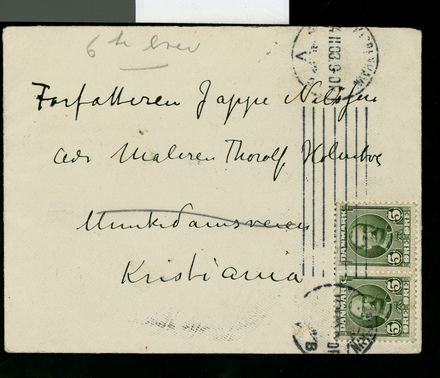 6te brev
Forfatteren Jappe Nilssen
adr Maleren Thorolf Holmboe
Munkedamsveien
Kristiania
DANMARK
5 5
ØRE ØRE
DANMARK
5 5
ØRE ØRE